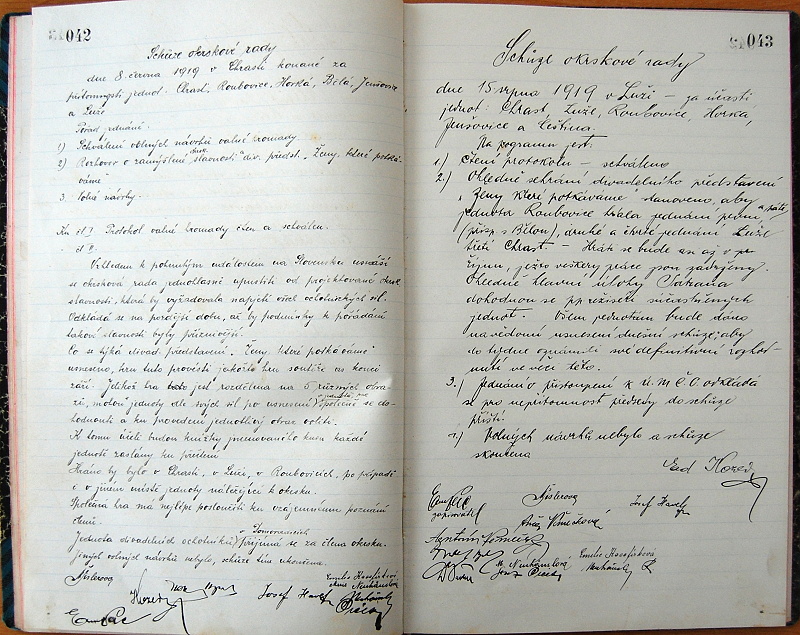 042
Schůze okrskové rady
dne 8. června 1919 v Chrasti konané za
přítomnosti jednot: Chrast, Roubovice, Horká, Bělá, Jenšovice
a Luže
Pořad jednání.
1) Schválení volných návrhů valné hromady
2) Rozhovor o zamýšlené slavnosti div. předst. „Ženy, které potká-
váme"
3. volné návrhy.
Ku č 1 Protokol valné hromady čten a schválen.
č 2.
Vzhledem k pohnutým událostem na Slovensku usnáší
se okrsková rada jednohlasně upustiti od projektované okrsk.
slavnosti, která by vyžadovala napjetí všech ochotnických sil.
Odkládá se na pozdější dobu, až by podmínky k pořádání
takové slavnosti byly příznivější.
Co se týká divad. představení „Ženy, které potkáváme"
usneseno, hru tuto provésti jakožto hru soutěže as koncem
září. Jelikož hra jest rozdělena na 5 různých obra-
zů, mohou jednoty dle svých sil po usnesení společně se do-
hodnouti a ku provedení jednotlivý obraz voliti.
K tomu účeli budou knížky jmenovaného kusu každé
jednotě zaslány ku přečtení.
Hráno by bylo v Chrasti, v Luži, v Roubovicích, po případě
i v jiném místě jednoty náležející k okrsku.
Společná hra má nejlépe posloužiti ku vzájemnému poznání
Jednota divadelních ochotníků přijímá se za člena okrsku.
Jiných volných návrhů nebylo, schůze tím ukončena.
Šislerova
Kozedy Josef Havel Emilie Hansfátová
043
Schůze okrskové rady
dne 15 srpna 1919 v Luži – za účasti
jednot: Chrast, Luže, Roubovice, Horká,
Jenšovice a Čeština.
Na programu jest:
1.) Čtení protokolu – schváleno
2.) Ohledně sehrání divadelního představení
„Ženy které potkáváme" stanoveno, aby
jednota Roubovice hrála jednání první, a páté
(přísp. s Bělou), druhé a čtvrté jednání Luže
třetí Chrast – Hráti se bude as až v ři-
jnu, ježto veškery práce jsou zadrženy.
Ohledně hlavní úlohy Satana
dohodnou se pp režiséři súčastněných
jednot. Všem jednotám bude dáno
na vědomí usnesení dnešní schůze; aby
do týdne oznámili své definitivní rozhod-
nutí ve věci této.
3.) Jednání o přistoupení k Ú.M.Č.O. odkládá
se pro nepřítomnost předsedy do schůze
příští.
Volných návrhů nebylo a schůze
skončena
Ed Kozedy
zapisovatel
Šislerova
Josef Havel
Anežka Němečková
Antonín Němeček
M. Neuhäuslová
Emilie Hansfátová